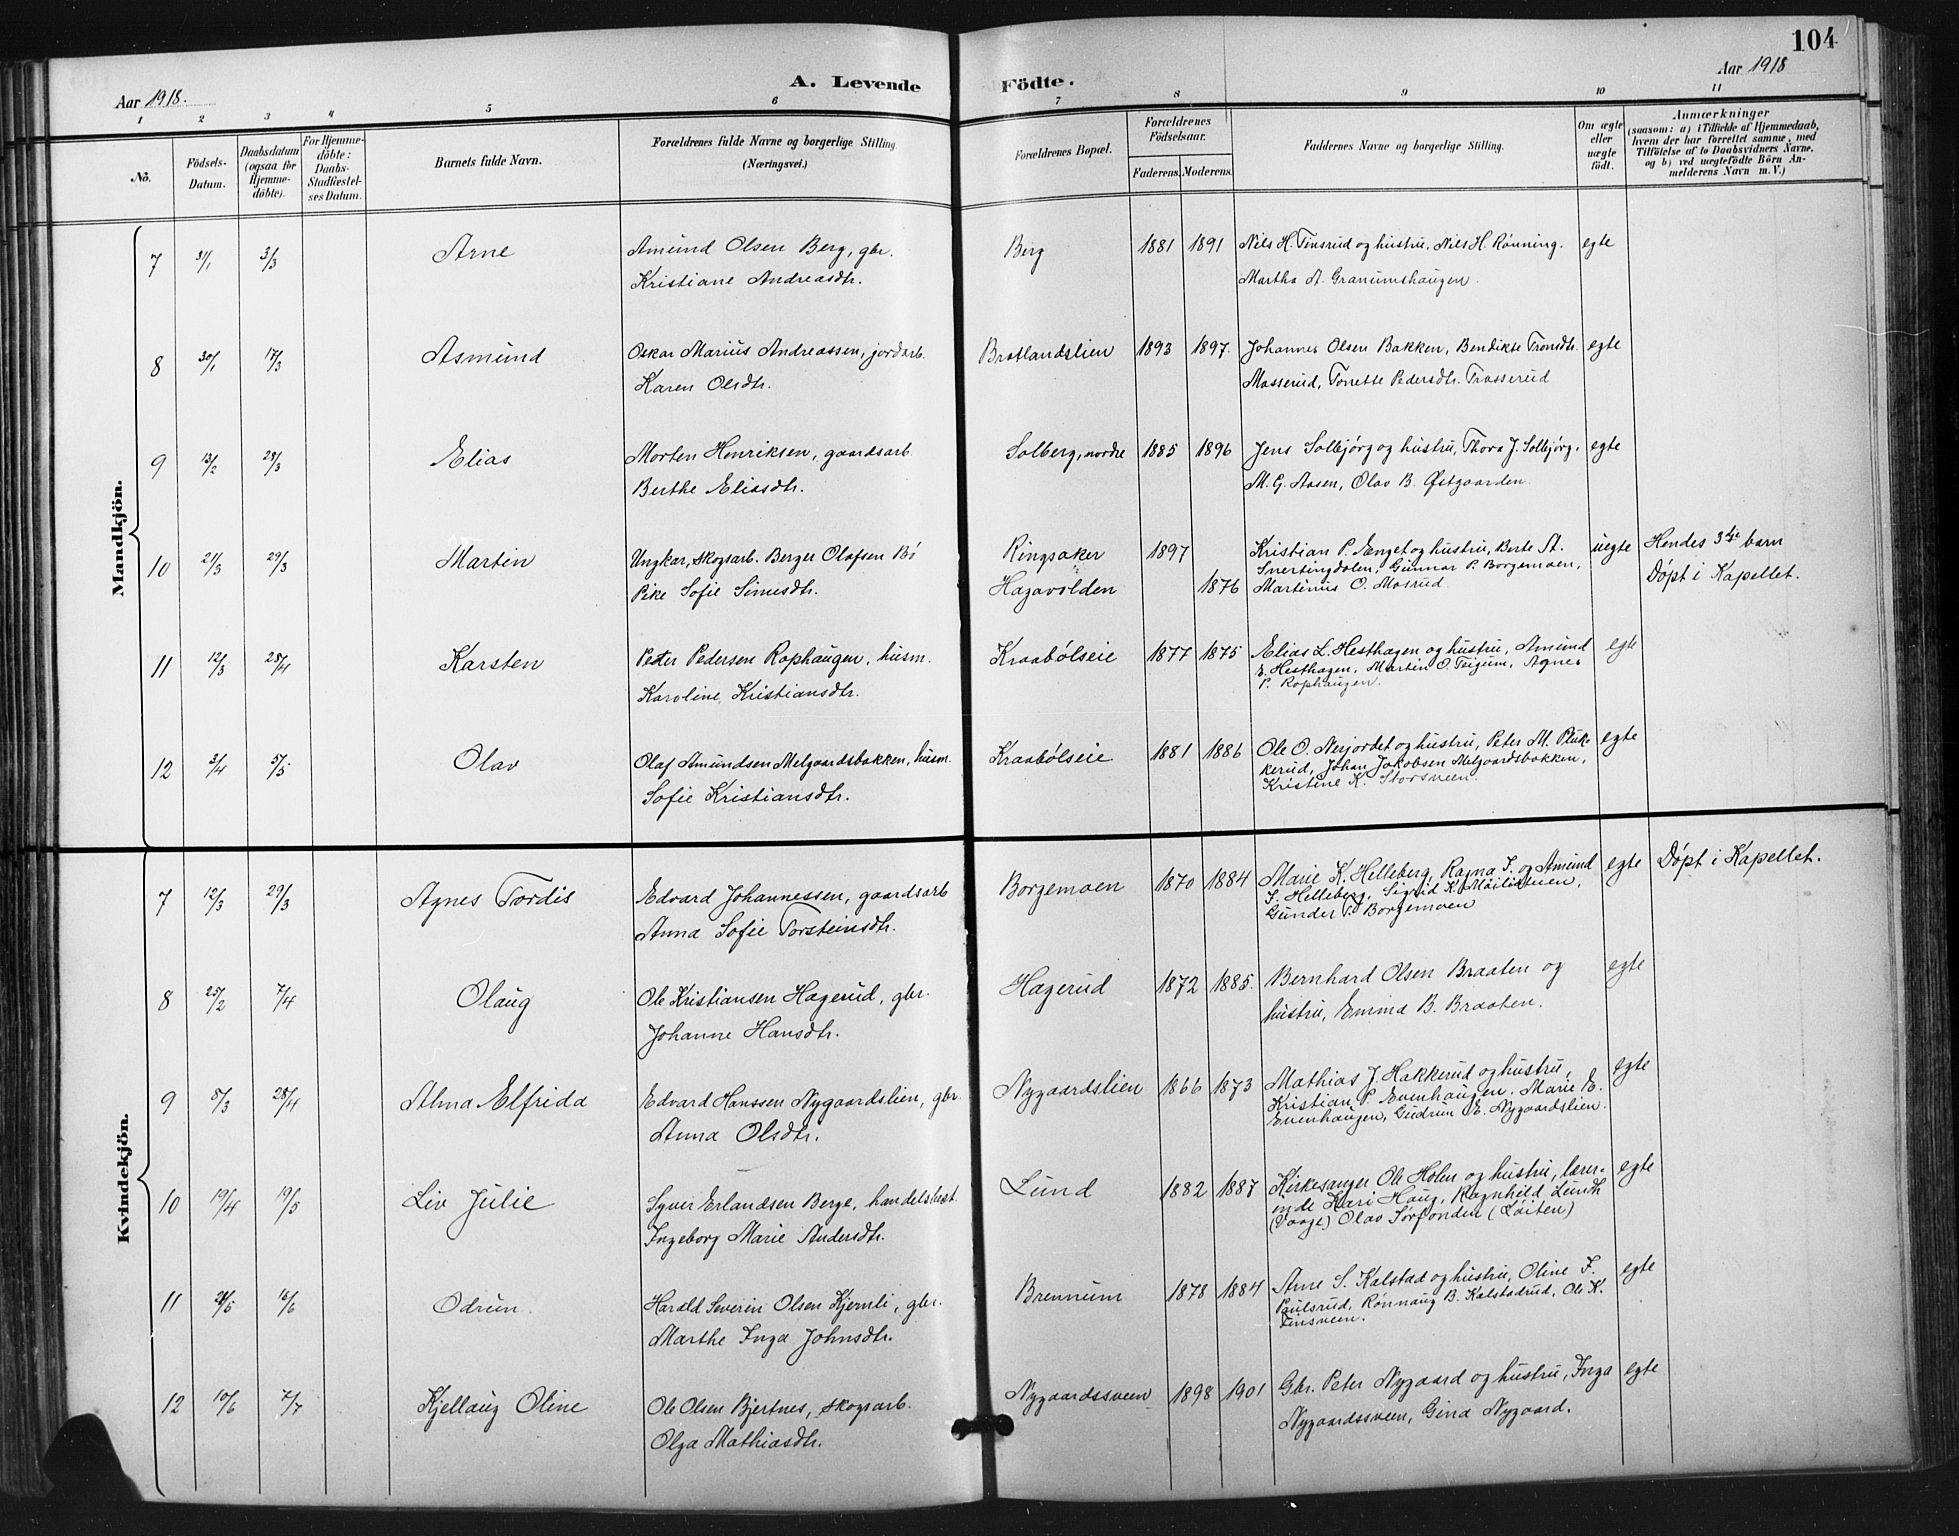 104
Aar 1918.
A. Levende
Födte.
Aar 1918
1 2 3 4 5 6 7 8 9 10 11
No.
Födsels-
Datum.
Daabsdatum
(ogsaa for
Hjemme-
døbte).
For Hjemme-
döbte:
Daabs-
Stadfæstel-
ses Datum.
Barnets fulde Navn.
Forældrenes fulde Navne og borgerlige Stilling
(Næringsvei.)
Forældrenes Bopæl.
Forældrenes
Födselsaar.
Faderens. Moderens.
Faddernes Navne og borgerlige Stilling.
Om ægte
eller
uægte
födt.
Anmærkninger
(saasom: a) i Tilfælde af Hjemmedaab,
hvem der har forrettet samme, med
Tilföielse af to Daabsvidners Navne.
og b) ved uægtefödte Börn An-
melderens Navn m. V.)
Mandkjön.
7 31/1 3/3 Arne Amund Olsen Berg, gbr. Berg 1881 1891 Nils H. Finsrud og hustru, Nils H. Rønning. egte
Kristiane Andreasdtr. Martha A. Granumshaugen.
8 30/1 17/3 Asmund Oskar Marius Andreassen, jordarb. Brotlandslien 1893 1897. Johannes Olsen Bakken, Bendikte Tronsdtr. egte
Karen Olsdtr. Masserud, Tonette Pedersdtr. Trosserud
9 13/2 28/3 Elias Morten Henriksen, gaardsarb. Solberg, nordre 1885 1896 Jens Solbjørg og hustru, Thora J. Solbjørg, egte
Berthe Eliasdtr. M. G. Aasen, Olav B. Østgaarden.
10 21/3 29/3 Martin Ungkar, skogsarb. Berger Olafsen Bø Ringsaker 1897 Kristian P. Enget og hustru, Berte St. uegte Hendes 3die barn
Snertingdalen, Gunnar P. Borgemoen,
Pike Sofie Simesdtr. Hagavolden 1876 Martinus O. Mosrud Døpt i Kapellet.
11 12/3 28/4 Karsten Peter Pedersen Rophaugen, husm. Kraabølseie 1877 1875 Elias L. Hesthagen og hustru, Amund egte
E. Hesthagen, Martin O. Teigum, Agnes
Karoline Kristiansdtr. P. Rophaugen.
12 3/4 5/5 Olav Olaf Amundsen Melgaardsbakken, husm. Kraabølseie 1881 1886 Ole O. Nesjordet og hustru, Peter M. Pluk- egte
kerud, Johan Jakobsen Melgaardsbakken,
Sofie Kristiansdtr. Kristine K. Storsveen.
Kvindekjön.
7 12/3 29/3 Agnes Tordis Edvard Johannessen, gaardsarb Borgemoen 1870 1884 Marie K. Helleberg, Ragna S. og Amund egte Døpt i Kapellet.
S. Helleberg, Sigrid K.
Anna Sofie Torsteinsdtr. Gunder P. Borgemoen
8 25/2 7/4 Olaug Ole Kristiansen Hagerud, gbr. Hagerud 1872 1885. Bernhard Olsen Braaten og egte
Johanne Hansdtr. hustru, Emma B. Braaten.
9 8/3 28/4 Alma Elfrida Edvard Hanssen Nygaardslien, gbr. Nygaardslien 1866 1873 Mathias J. Hakkerud og hustru, egte
Kristian P. Evenhaugen, Marie E.
Anna Olsdtr. Evenhaugen, Gudrun E. Nygaardslien.
10 19/4 19/5 Liv Julie Syver Erlandsen Berge, handelsbest. Lund 1882 1887 Kirkesanger Ole Holen og hustru, lærer- egte
inde Kari Haug, Ragnhild Lundh
Ingeborg Marie Andersdtr. (Vaage) Olav Sørfonden (Løiten)
11 16/6 Odrun. Harald Severin Olsen Kjernli, gbr. Brennum 1878 1884 Arne S. Kalstad og hustru, Oline F. egte
Paulsrud, Rønnaug B. Kalstadrud, Ole K.
Marthe Inga Johnsdtr. Finsveen.
12 10/6 7/7 Kjellaug Oline Ole Olsen Bjertnes, skogsarb. Nygaardssveen 1898 1901 Gbr. Peter Nygaard og hustru, Inga egte
Olga Mathiasdtr. Nygaardssveen, Gina Nygaard.